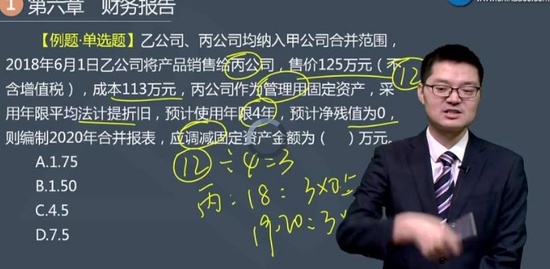 1 第六章 财务报告
【例题·单选题】乙公司、丙公司均纳入甲公司合并范围，
2018年6月1日乙公司将产品销售给丙公司，售价125万元（不
含增值税），成本113万元，丙公司作为管理用固定资产，采
用年限平均法计提折旧，预计使用年限4年，预计净残值为0，
则编制2020年合并报表，应调减固定资产金额为（ ）万元。
12
A.1.75
B.1.50
C.4.5
D.7.5
12÷4=3
丙：18：3×0.5
19.20=3×